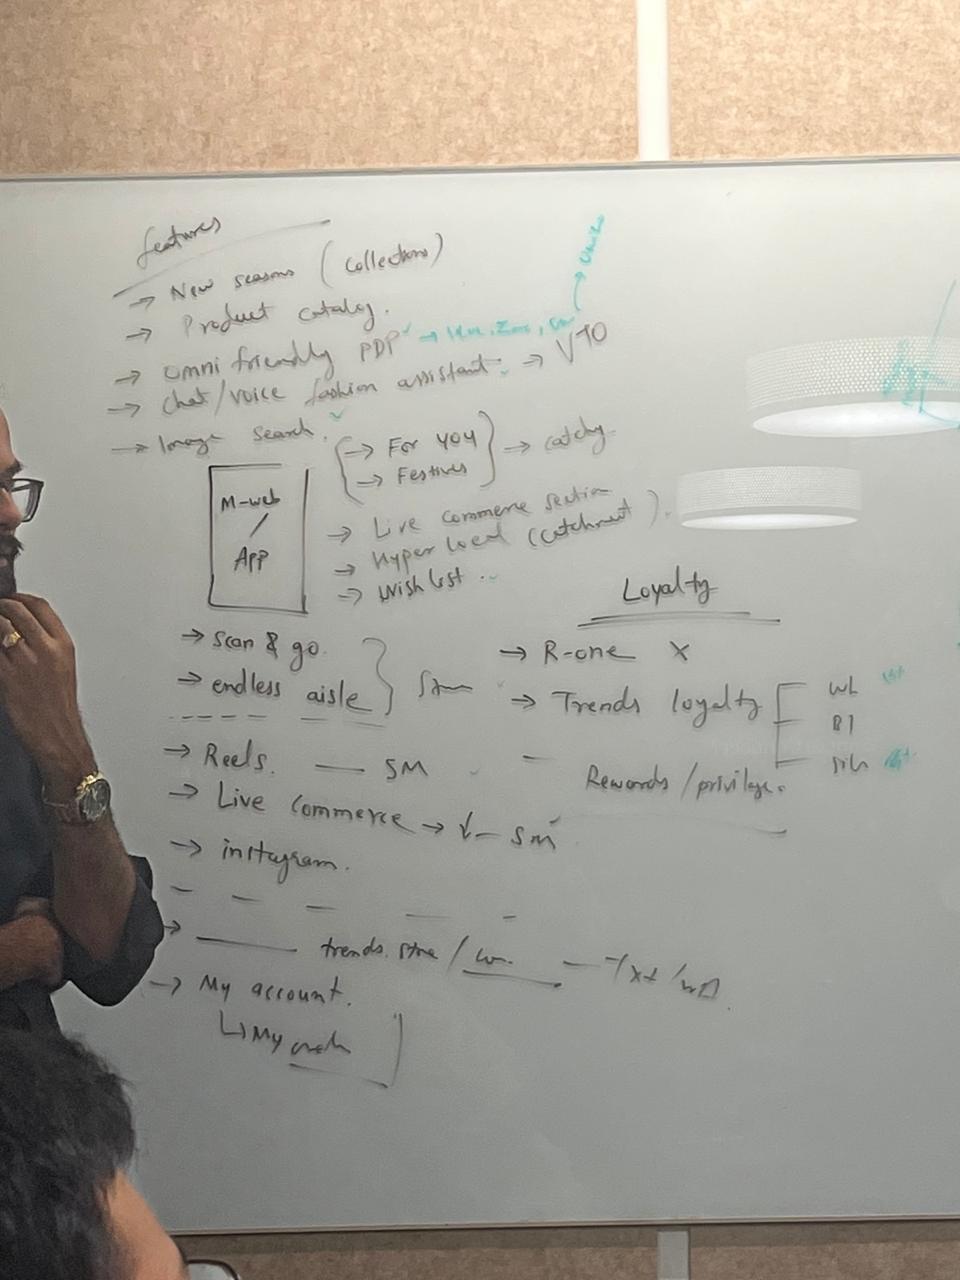 features
→ New seasons (Collections)
→ Product catalog.
→ omni friendly PDP →
→ chat/voice fashion assistant. → VTO
→ Image search.
→ For you
→ Festives
→ catchy
M-web
/
APP
→ Live commerce section
→ Hyper local (catchment).
→ wish list ..
Loyalty
→ scan & go.
→ endless aisle
→ R-one X
→ Trends loyalty
→ Reels. — SM
Rewards/privilege.
→ Live commerce → SM
→ instagram.
→ trends. /
→ My account.
↳ My